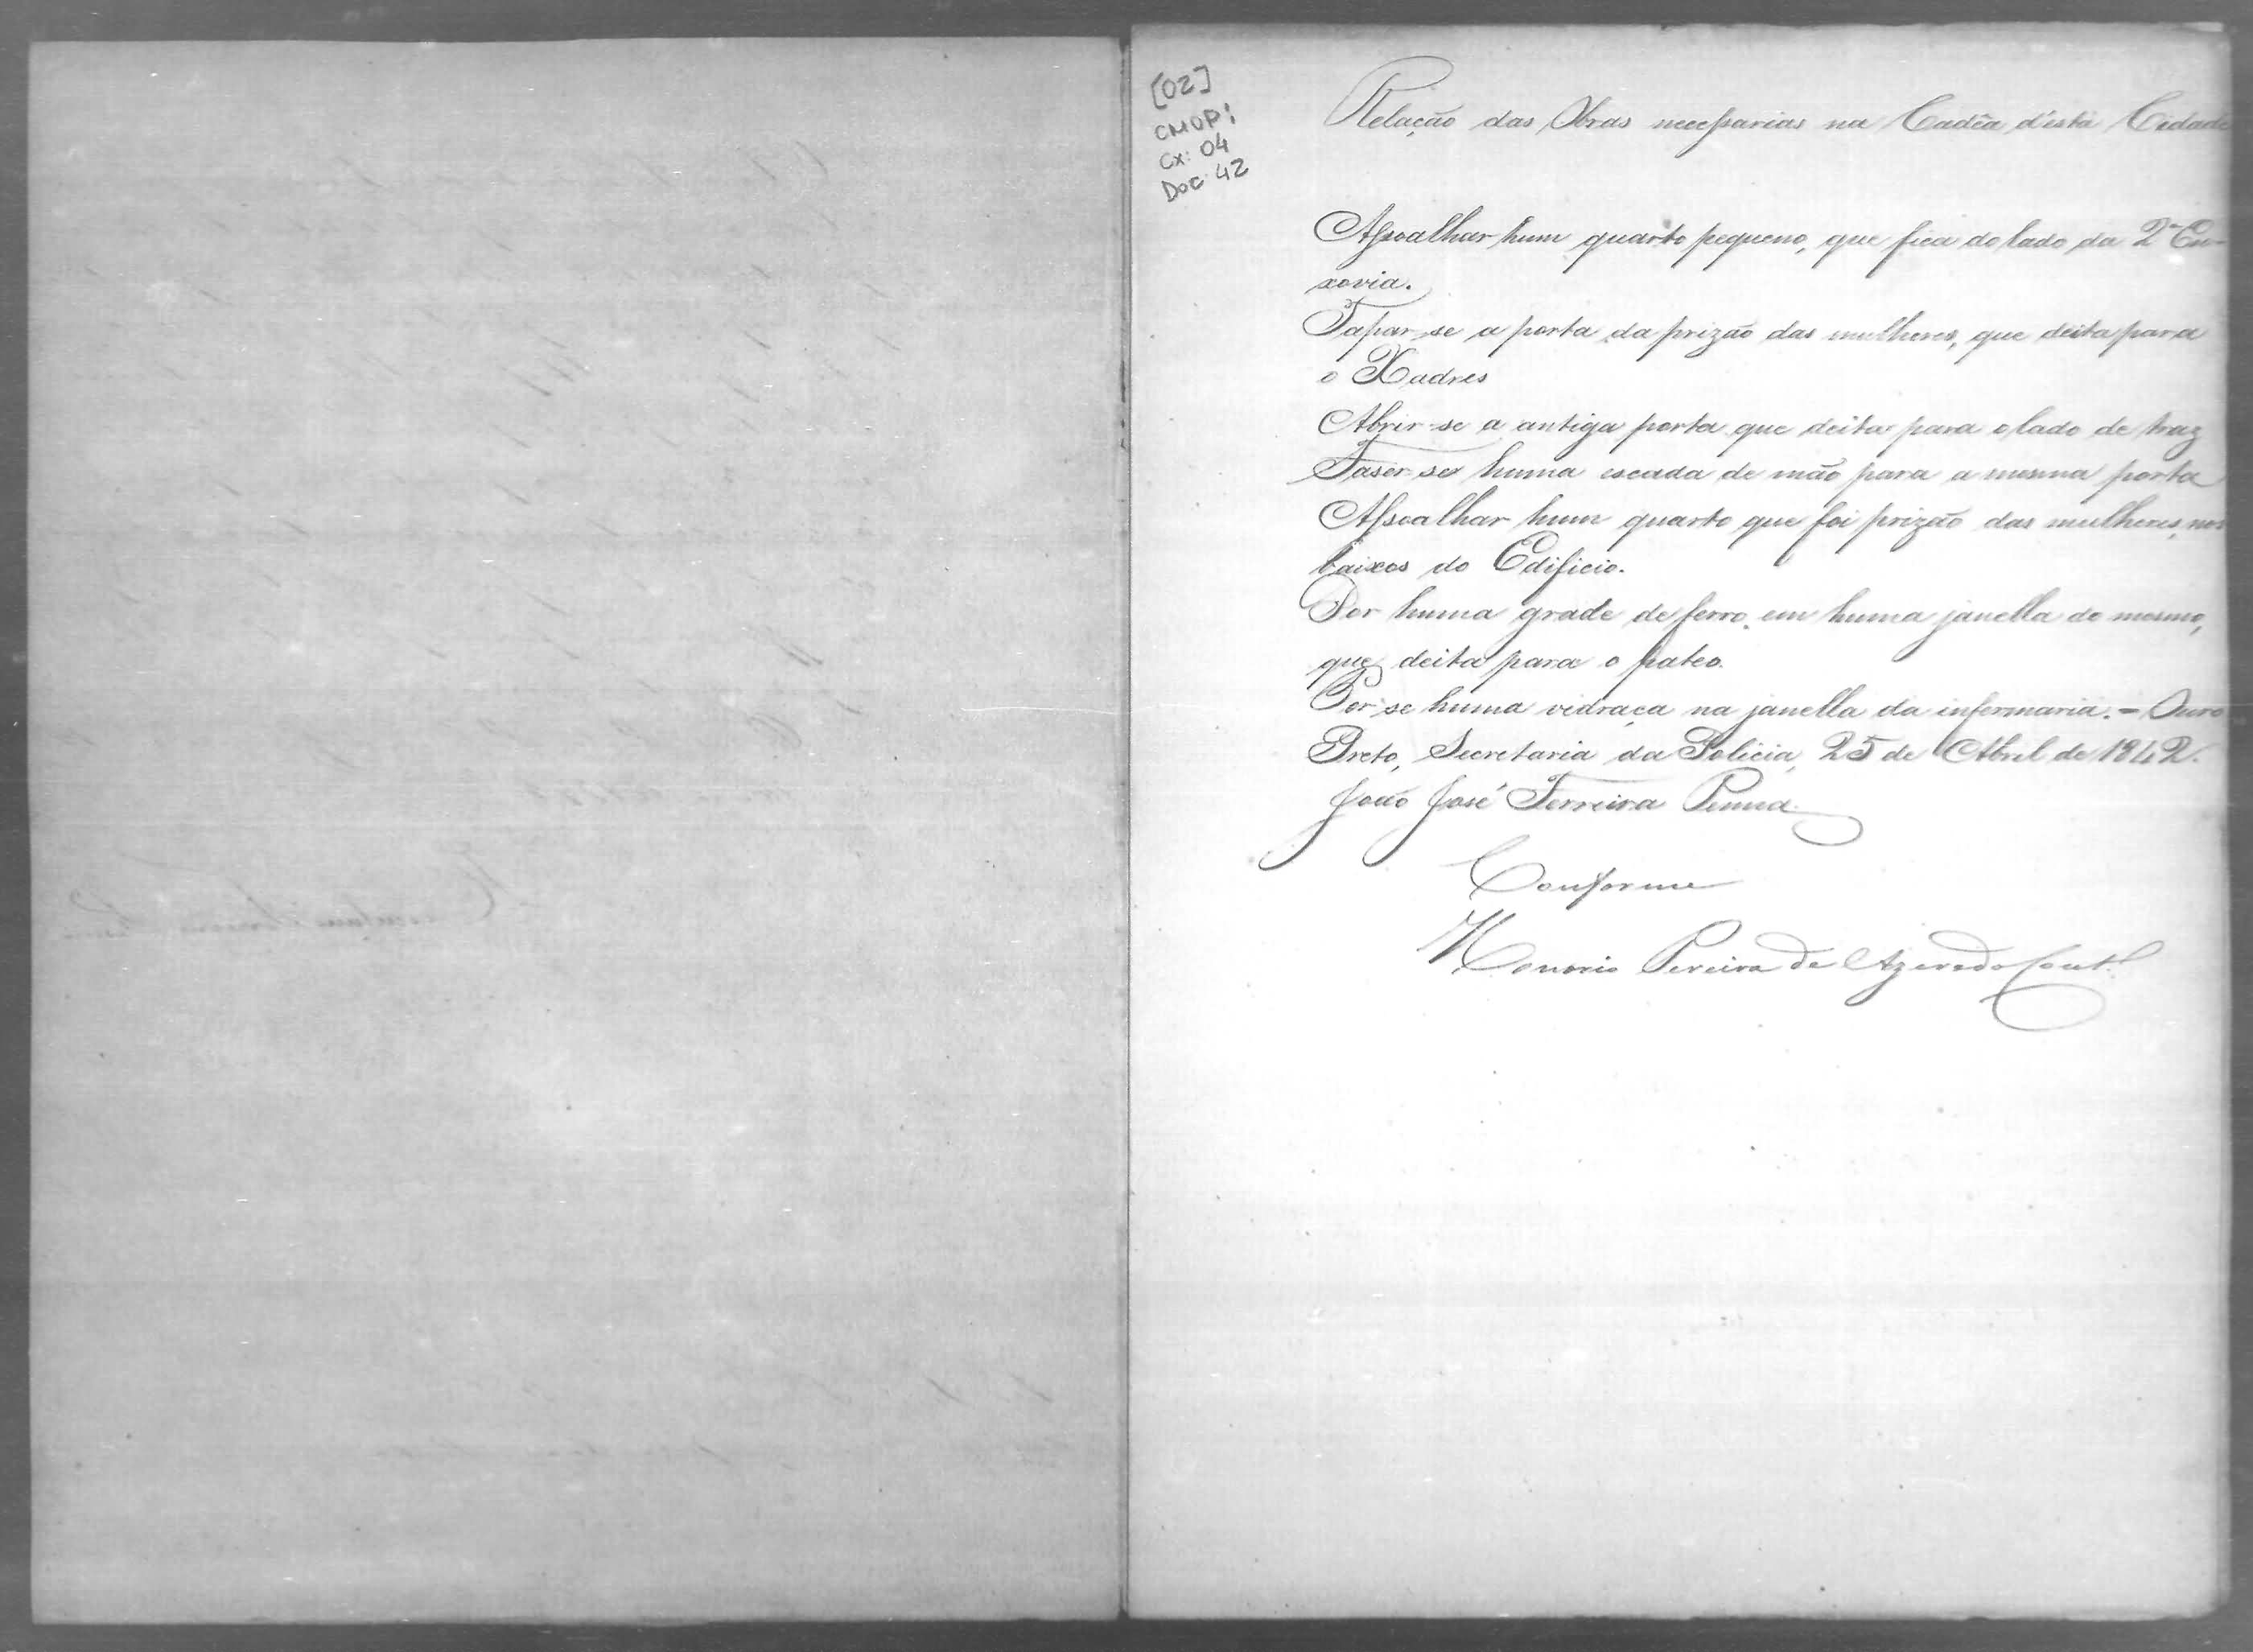 [02]
CMOP;
Cx: 04
Doc: 42
Relação das Obras necessarias na Cadêa d'esta Cidade
Assoalhar hum quarto pequeno, que fica do lado da 2ª En-
xovia.
Tapar-se a porta da prizão das mulheres, que deita para
o Xadres
Abrir-se a antiga porta que deita para o lado de traz
Faser-se huma escada de mão para a mesma porta
Assoalhar hum quarto que foi prizão das mulheres, nos
baixos do Edificio.
Por huma grade de ferro em huma janella do mesmo,
que deita para o pateo.
Por-se huma vidraça na janella da infermaria. = Ouro
Preto, Secretaria da Policia, 25 de Abril de 1842.
João José Ferreira Penna.
Conforme
Honorio Pereira de Azeredo Cout.º